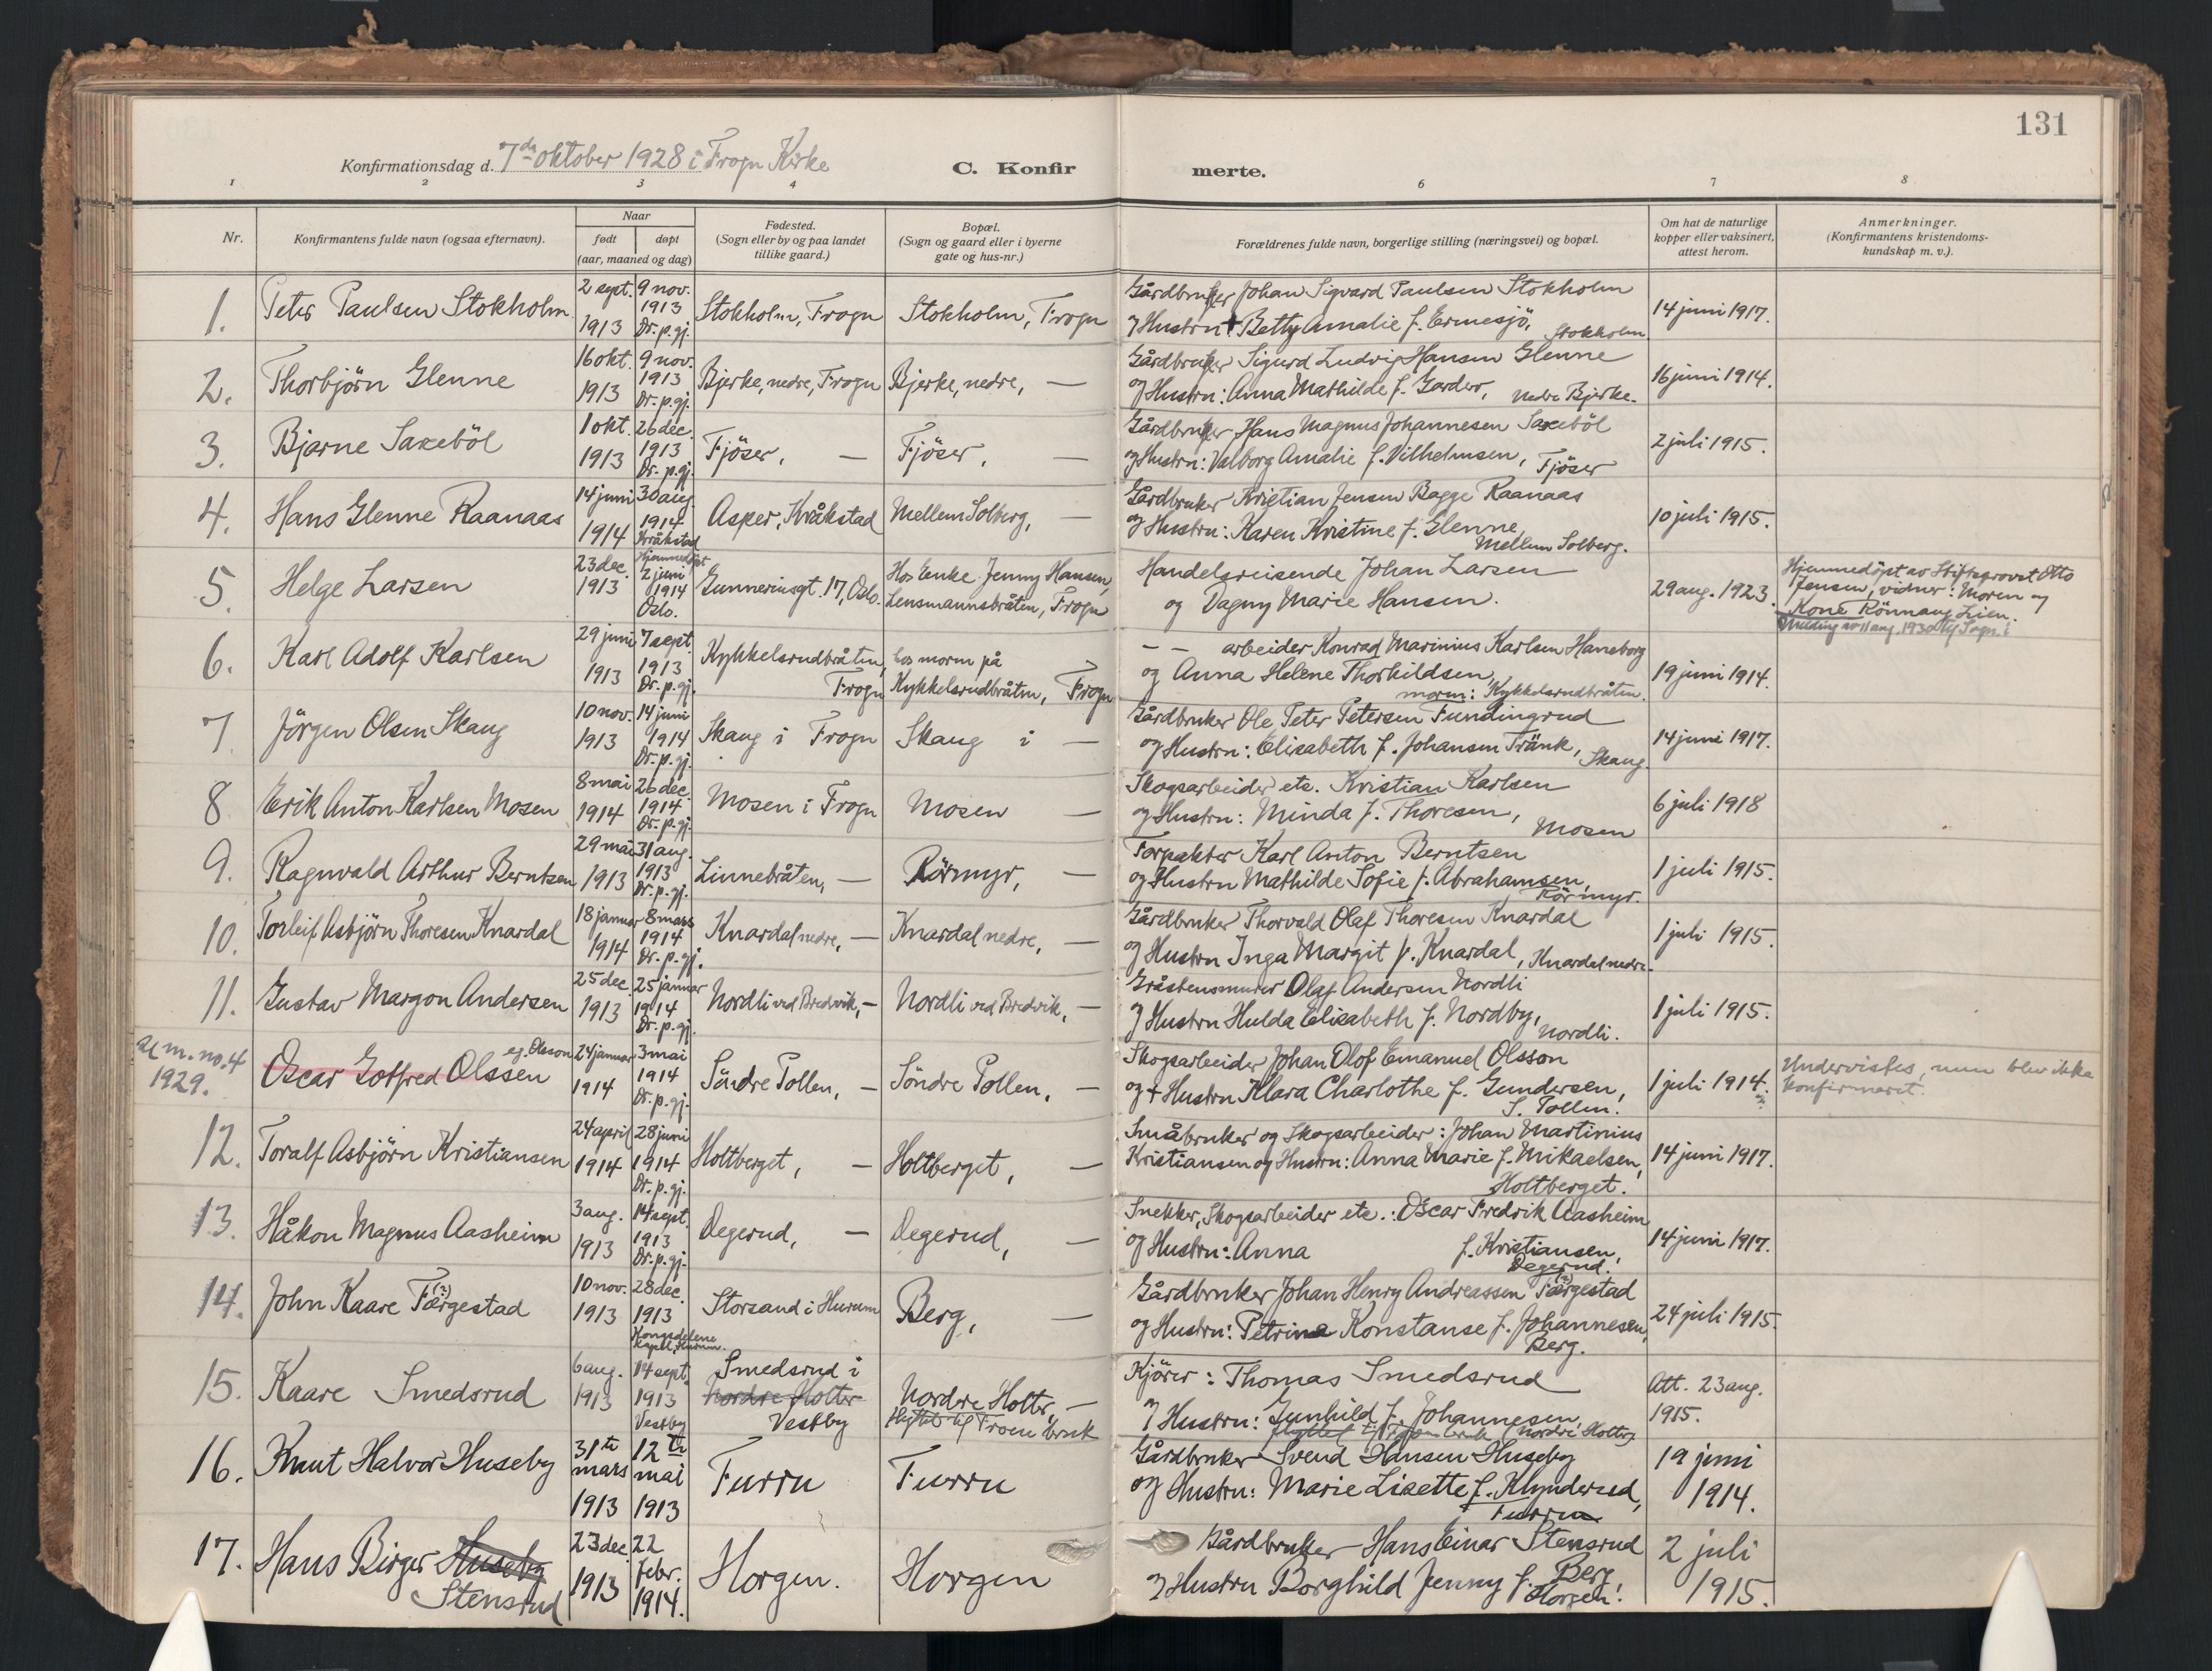 131
Konfirmationsdag d. 7de oktober 1928 i Frogn Kirke
C. Konfirmerte.
1 2 3 4 6 7 8
Nr.
Konfirmantens fulde navn (ogsaa efternavn).
Naar
født døpt
(aar, maaned og dag)
Fødested.
(Sogn eller by og paa landet
tillike gaard.)
Bopæl.
(Sogn og gaard eller i byerne
gate og hus-nr.)
Forældrenes fulde navn, borgerlige stilling (næringsvei) og bopæl.
Om hat de naturlige
kopper eller vaksinert,
attest herom.
Anmerkninger.
(Konfirmantens kristendoms-
kundskap m. v.).
1. Peter Paulsen Stokholm
2 sept. 1913
9 nov. 1913 Dr. p. gj.
Stokholm, Frogn
Stokholm, Frogn
Gårdbruker Johan Sigvard Paulsen Stokholm
og Hustru † Betty Amalie f. Ermesjö, Stokholm
14 juni 1917.
2. Thorbjörn Glenne
16 okt. 1913
9 nov. 1913 Dr. p. gj.
Bjerke, nedre, Frogn
Bjerke, nedre, —
Gårdbruker Sigurd Ludvig Hansen Glenne
og Hustru: Anna Mathilde f. Garder, Nedre Bjerke.
16 juni 1914.
3. Bjarne Saxeböl
1 okt. 1913
26 dec. 1913 Dr. p. gj.
Fjöser, —
Fjöser, —
Gårdbruker Hans Magnus Johannesen Saxeböl
og Hustru: Valborg Amalie f. Vilhelmsen, Fjöser
2 juli 1915.
4. Hans Glenne Raanaas
14 juni 1914
30 aug. 1914 Kråkstad
Asper, Kråkstad
Mellem Solberg, —
Gårdbruker Kristian Jensen Bagge Raanaas
og Hustru: Karen Kristine f. Glenne,
Mellem Solberg.
10 juli 1915.
5. Helge Larsen
23 dec. 1913
Hjemmedöpt 2 juni 1914 Oslo.
Gunneriusgt. 17, Oslo.
Hos Enke Jenny Hansen,
Lensmannsbråten, Frogn
Handelsreisende Johan Larsen
og Dagny Marie Hansen.
29 aug. 1923.
Hjemmedöpt av Stiftsprovst Otto
Jensen, vidner: Moren og
Kone Rönnaug Lien.
Melding av 11 aug. 1930
6. Karl Adolf Karlsen
29 juni 1913
7 sept. 1913 Dr. p. gj.
Kykkelsrudbråten, Frogn
hos morm på
Kykkelsrudbråten, Frogn
— — arbeider Konrad Marinius Karlsen Haneborg
og Anna Helene Thorkildsen,
morm: Kykkelsrudbråten.
19 juni 1914.
7. Jörgen Olsen Skaug
10 nov. 1913
14 juni 1914 Dr. p. gj.
Skaug i Frogn
Skaug i —
Gårdbruker Ole Peter Petersen Fundingrud
og Hustru: Elisabeth f. Johansen Tränk, Skaug.
14 juni 1917.
8 Erik Anton Karlsen Mosen
8 mai 1914
26 dec. 1914 Dr. p. gj.
Mosen i Frogn
Mosen —
Skogsarbeider etc. Kristian Karlsen
og Hustru: Minda f. Thoresen, Mosen
6 juli 1918
9. Ragnvald Arthur Berntsen
29 mai 1913
31 aug. 1913 Dr. p. gj.
Linnebråten, —
Rörmyr, —
Forpakter Karl Anton Berntsen
og Hustru Mathilde Sofie f. Abrahamsen,
Rörmyr.
1 juli 1915.
10. Torleif Asbjörn Thoresen Knardal
18 januar 1914
8 mars 1914 Dr. p. gj.
Knardal nedre, —
Knardal nedre, —
Gårdbruker Thorvald Olaf Thoresen Knardal
og Hustru Inga Margit f. Knardal, Knardal nedre.
1 juli 1915.
11. Gustav Margon Andersen
25 dec. 1913
25 januar 1914 Dr. p. gj.
Nordli ved Bredvik, —
Nordli ved Bredvik, —
Gråstensmurer Olaf Andersen Nordli
og Hustru Hulda Elisabeth f. Nordby,
Nordli.
1 juli 1915.
m. no. 4
1929.
Oscar Gotfred Olssen
eg. Olsson
24 januar 1914
3 mai 1914 Dr. p. gj.
Söndre Pollen, —
Söndre Pollen, —
Skogsarbeider Johan Olof Emanuel Olsson
og † Hustru Klara Charlothe f. Gundersen,
S. Pollen.
1 juli 1914.
Undervistes, men blev ikke
konfirmeret.
12. Toralf Asbjörn Kristiansen
24 april 1914
28 juni 1914 Dr. p. gj.
Holtberget, —
Holtberget, —
Småbruker og Skogsarbeider: Johan Martinius
Kristiansen og Hustru: Anna Marie f. Mikaelsen,
Holtberget.
14 juni 1917.
13. Håkon Magnus Aasheim
3 aug. 1913
14 sept. 1913 Dr. p. gj.
Degerud, —
Degerud, —
Snekker, Skogsarbeider etc.: Oscar Fredrik Aasheim
og Hustru: Anna f. Kristiansen,
Degerud.
14 juni 1917.
14. John Kaare Færgestad
10 nov. 1913
28 dec. 1913 Kongsdelene Kapel, Hurum.
Storsand i Hurum
Berg, —
Gårdbruker Johan Henry Andreassen Færgestad
og Hustru: Petrine Konstanse f. Johannesen,
Berg.
24 juli 1915.
15. Kaare Smedsrud
6 aug. 1913
14 sept. 1913 Vestby
Smedsrud i
Nordre Holter
Vestby
Nordre Holter, —
Flyttet til Froen bruk
Kjörer: Thomas Smedsrud
og Hustru: Gunhild f. Johannesen,
flyttet til Froen bruk (Nordre Holter)
Att. 23 aug.
1915.
16. Knut Halvor Huseby
31te mars 1913
12te mai 1913
Furru
Furru
Gårdbruker Svend Hansen Huseby
og Hustru: Marie Lisette f. Klynderud,
Furru
19 juni
1914.
17. Hans Birger Huseby
Stensrud
23 dec. 1913
22 febr. 1914.
Horgen.
Horgen
Gårdbruker Hans Einar Stensrud
og Hustru Borghild Jenny f. Berg,
Horgen.
2 juli
1915.